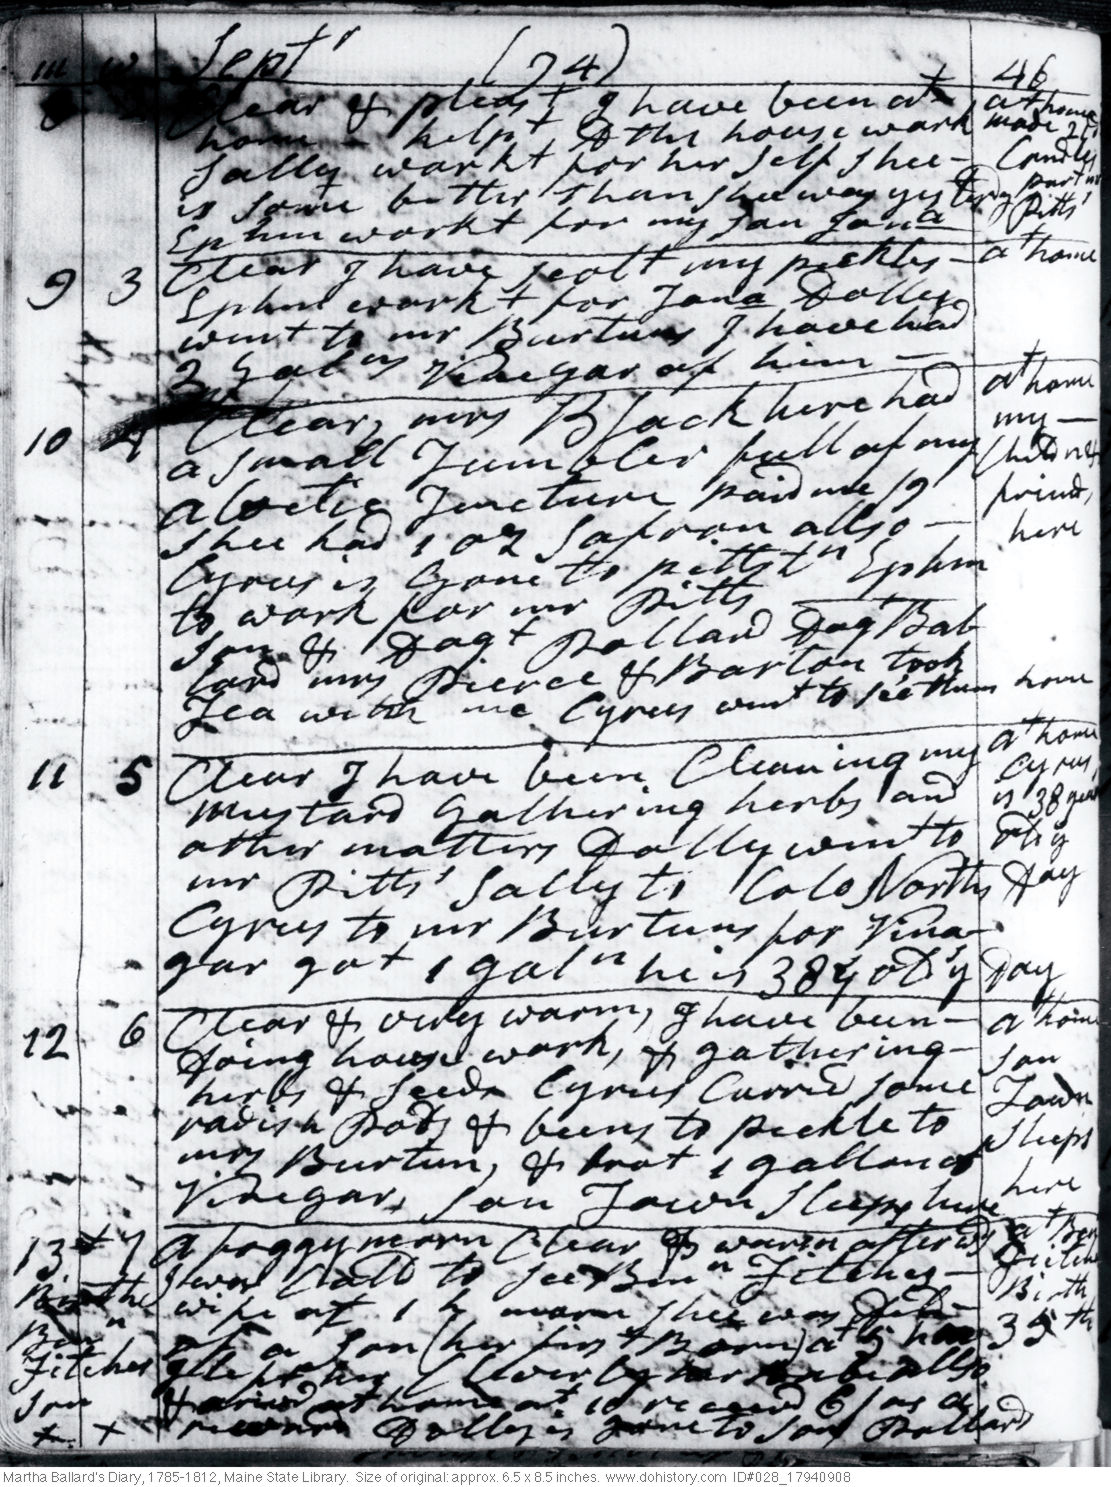 m w Sept' (94) 46
8 2 Clear & pleast I have been at at home
home helpt do the house work made 26
Sally workt for her self shee Candles
is some better than shee was yester part mr
Ephm workt for my son Jona Pitts'
9 3 Clear I have scolt my pickles at home
Ephm workt for Jona Dolly
went to mr Burtuns I have had
2 galns Vinegar of him
10 4 Clear, mrs Black here had at home
a small Tumbler full of my my
aloetic Tincture paid me 1/ Childn &
shee had 1 oz Safron allso friends
Cyrus is gone to pittstn Ephm here
to work for mr Pitts
Son & Dagt Pollard Dagt Bal
lard mrs Pierce & Barton took
Tea with me Cyrus went to see them home
11 5 Clear I have been Cleaning my at home
mustard gathering herbs and Cyrus
other matters Dolly went to is 38 years
mr Pitts' Sally to Colo Norths old this Day
Cyrus to mr Burtuns for Vina-
gar got 1 galn he is 38 y old this Day
12 6 Clear & very warm, I have been at home
doing house work, & gathering son
herbs & seeds Cyrus Carrid some Town
radish Pods & beens to peckle to sleeps
mrs Burtun, & brot 1 gallon of here
Vinegar, son Town sleeps here
13 7 a foggy morn Clear & warm afterwd at Ben
Birth I was Calld to see Benn Fitches Fitches
Benn wife at 1 h morn shee was deld Birth
Fitches of a son (her first Born) at 5 hour 35th
son I left her Cleverly & her Babe allso
x x & arivd at home at 10 received 6/ as a
reward Dolly is gone to son Pollards
Martha Ballard's Diary, 1785-1812, Maine State Library. Size of original: approx. 6.5 x 8.5 inches. www.dohistory.com ID#028_17940908